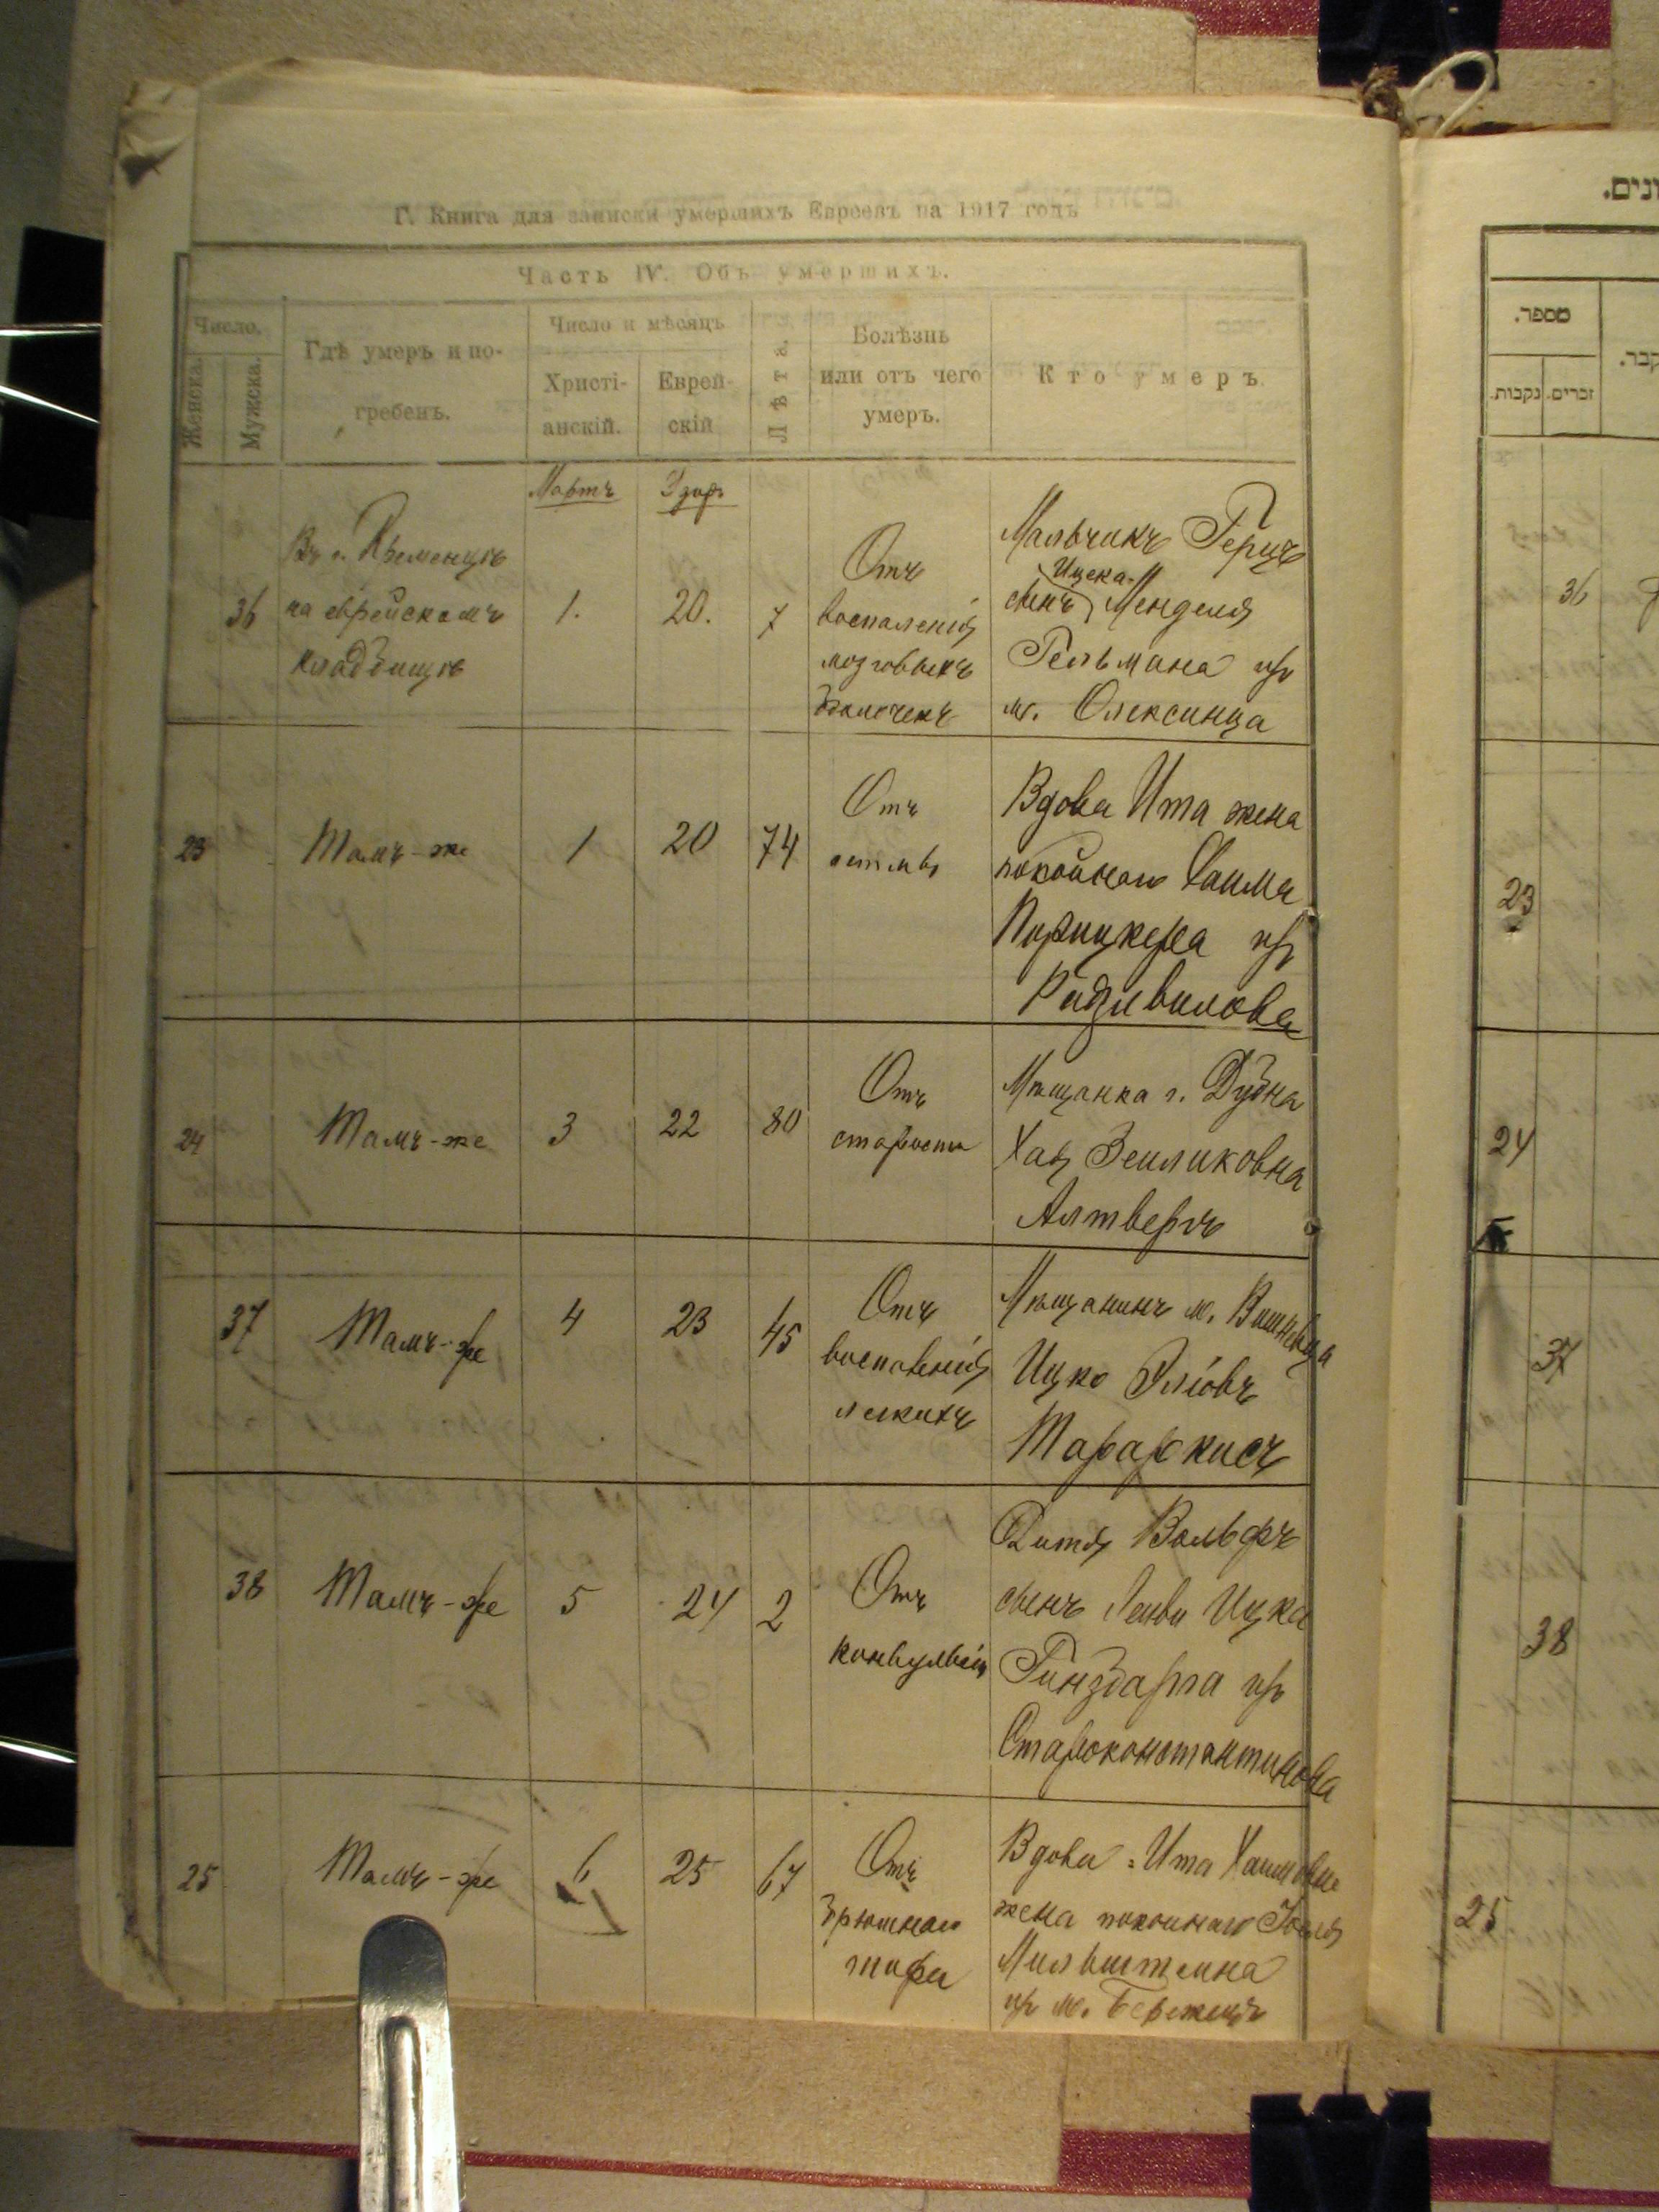 Г. Книга для записки умершихъ Евреевъ на 1917 годъ
Часть IV. Объ умершихъ.
Число.
Женска.
Мужска.
Гдѣ умеръ и по-
гребенъ.
Число и мѣсяцъ
Христі-
анскій.
Еврей-
скій
Лѣта.
Болѣзнь
или отъ чего
умеръ.
Кто умеръ
Мартъ
Эдаръ
36
Въ г. Кременцѣ
на еврейскомъ
кладбищѣ
1.
20.
7
Отъ
воспаленія
мозговыхъ
оболочекъ
Мальчикъ Герцъ
Ицека-
сынъ Менделя
Гельмана изъ
м. Олексинца
23
Тамъ-же
1
20
74
Отъ
астмы
Вдова Ита жена
покойнаго Хаима
Порицкера изъ
Радзивилова
24
Тамъ-же
3
22
80
Отъ
старости
Мѣщанка г. Дубна
Хая Зейликовна
Алтвергъ
37
Тамъ-же
4
23
45
Отъ
воспаленія
легкихъ
Мѣщанинъ м. Вишневца
Ицко Эліовъ
Тараркисъ
38
Тамъ-же
5
24
2
Отъ
конвульсій
Дитя Вольфъ
сынъ Лейви Ицка
Гинзбарга изъ
Староконстантинова
25
Тамъ-же
6
25
67
Отъ
брюшнаго
тифа
Вдова Ита Хаимовна
жена покойнаго Іоеля
Мильштейна
изъ м. Бережецъ
מספר.
נקבות.
זכרים.
36
23
24
37
38
25